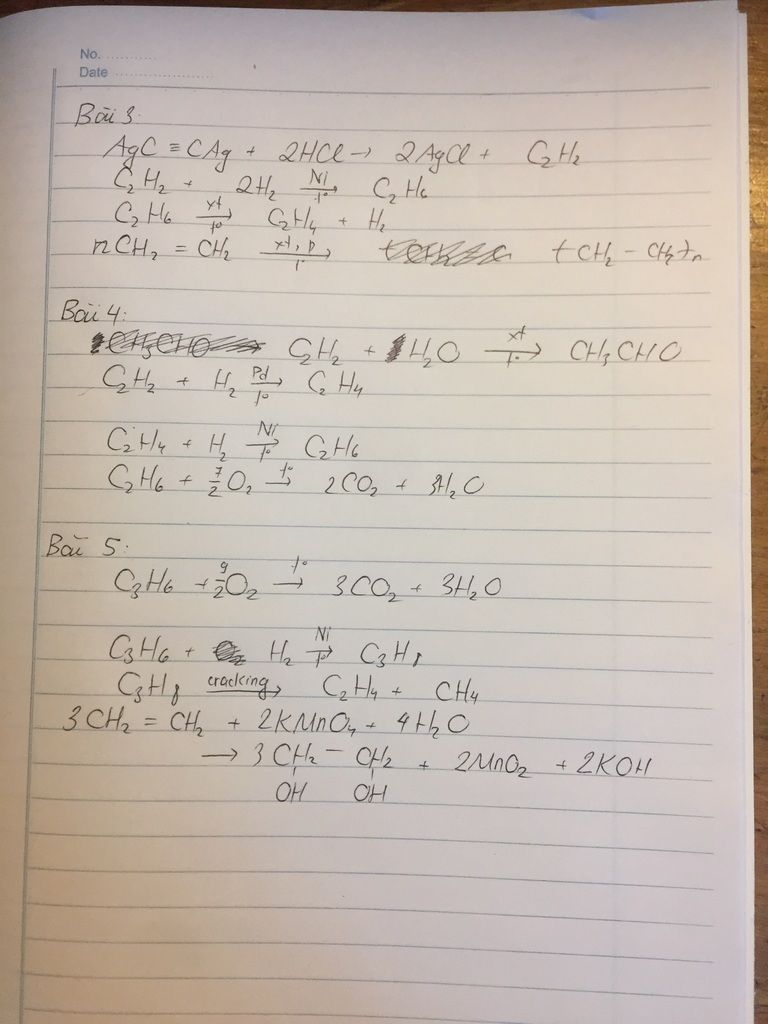 No. ............
Date ......................
Bài 3:
AgC ≡ CAg + 2HCl → 2AgCl + C₂H₂
C₂H₂ + 2H₂ →[Ni, t°] C₂H₆
C₂H₆ →[xt, t°] C₂H₄ + H₂
nCH₂ = CH₂ →[xt, p, t°] (CH₂ - CH₂)ₙ
Bài 4:
C₂H₂ + H₂O →[xt, t°] CH₃CHO
C₂H₂ + H₂ →[Pd, t°] C₂H₄
C₂H₄ + H₂ →[Ni, t°] C₂H₆
C₂H₆ + 7/2 O₂ →[t°] 2CO₂ + 3H₂O
Bài 5:
C₃H₆ + 9/2 O₂ →[t°] 3CO₂ + 3H₂O
C₃H₆ + H₂ →[Ni, t°] C₃H₈
C₃H₈ →[cracking] C₂H₄ + CH₄
3CH₂ = CH₂ + 2KMnO₄ + 4H₂O
→ 3CH₂ - CH₂ + 2MnO₂ + 2KOH
OH OH